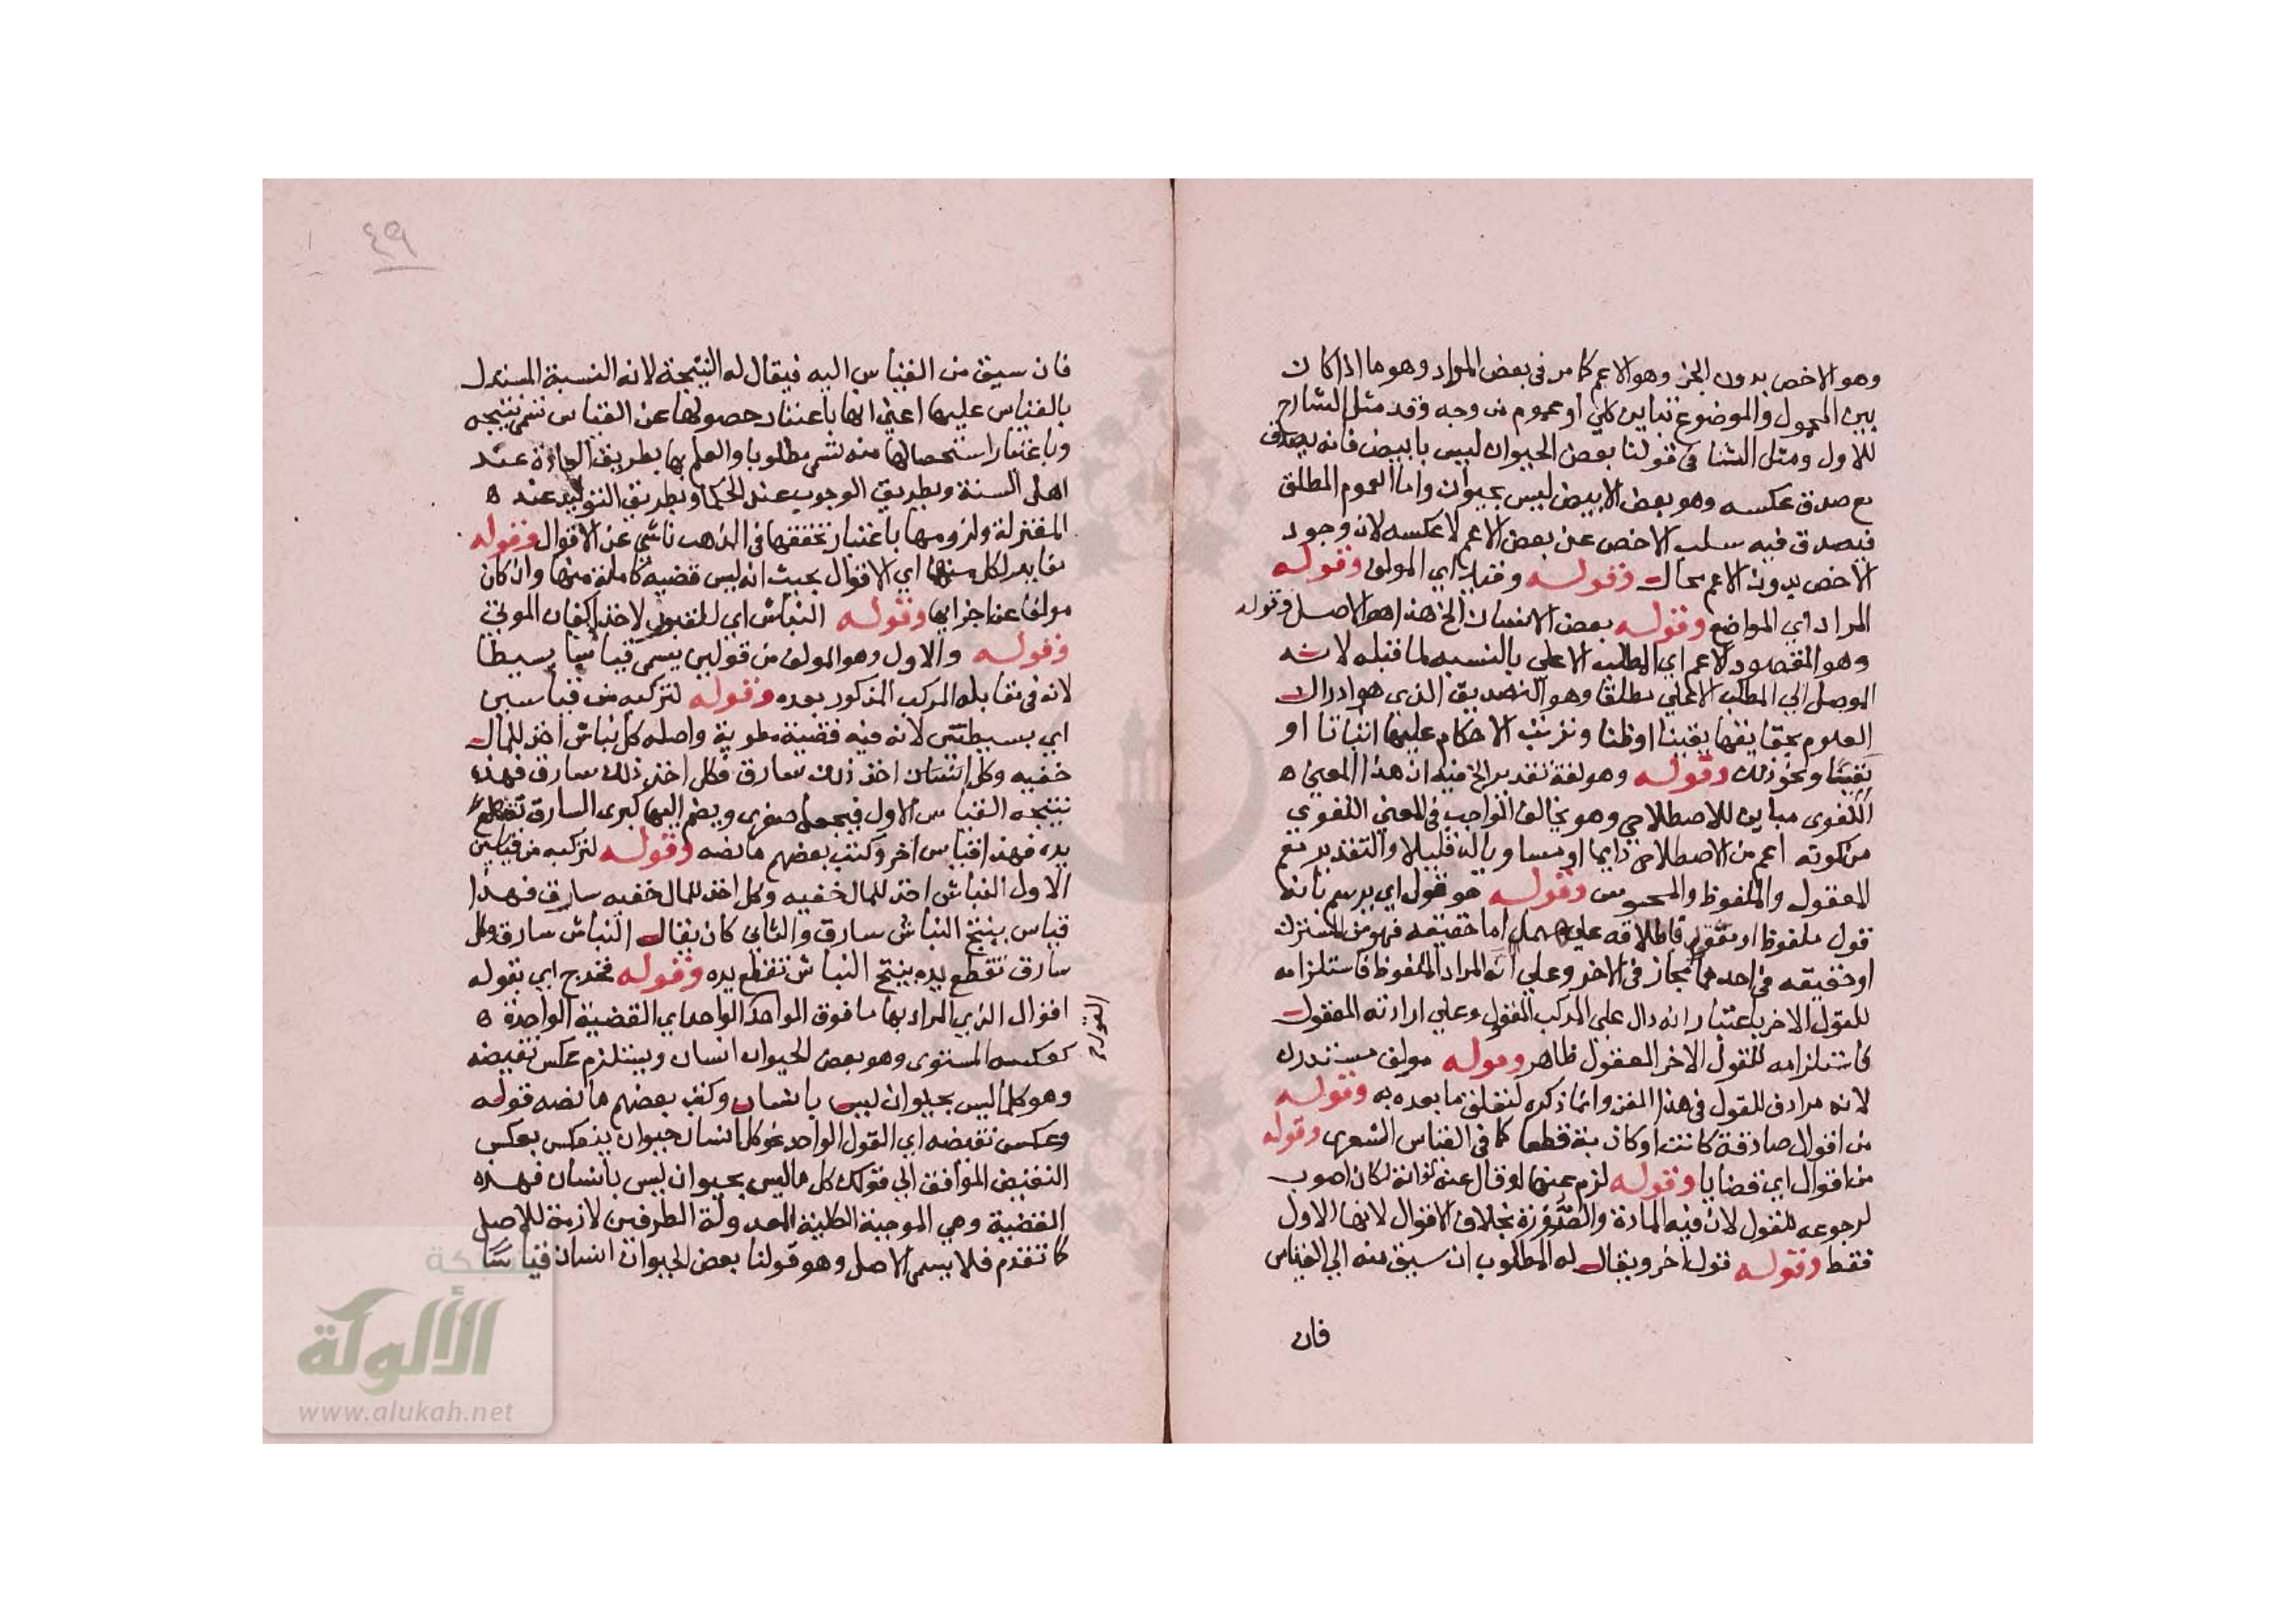 وهو الاخص بدون الجزء وهو الاعم كما مر في بعض المواد وهو ما اذا كان
بين المحمول والموضوع تباين كلي او عموم من وجه وقد مثل الشارح
للاول ومثل الثاني قولنا بعض الحيوان ليس بابيض فانه يصدق
مع صدق عكسه وهو بعض الابيض ليس بحيوان واما العموم المطلق
فيصدق فيه سلب الاخص عن بعض الاعم لا عكسه لان وجود
الاخص بدون الاعم محال وقوله وقياس اي المولف وقوله
المراد اي المواضع وقوله بعض الانسان الخ هذا هو الاصل وقوله
وهو المقصود الاعم اي المطلب الاعلي بالنسبه لما قبله لانه
الموصل الي المطلب الاعلي مطلقا وهو التصديق الذي هو ادراك
العلوم بحقايقها يقينا او ظنا وترتب الاحكام عليها اثباتا او
نفيا ونحو ذلك وقوله وهو لغة تقدير الخ فيه ان هذا المعني ه
اللغوي مباين للاصطلاحي وهو يخالف الواجب في المعني اللغوي
من كونه اعم من الاصطلاحي دايما او مساويا له قليلا والتقدير نعم
المعقول والملفوظ والمحسوس وقوله هو قول اي يرسم بانه
قول ملفوظ او معقول فاطلاقه عليهما اما حقيقه فهو من المشترك
او حقيقه في احدهما مجاز في الاخر وعلي انه المراد الملفوظ فاستلزامه
للقول الاخر باعتبار انه دال علي المركب المعقول وعلي ارادته المعقول
فاستلزامه للقول الاخر المعقول ظاهر وقوله مولف مستدرك
لانه مرادف للقول في هذا الفن وانما ذكره لتعلق ما بعده به وقوله
من اقوال صادقة كانت او كاذبة قطعا كما في القياس الشعري وقوله
من اقوال اي قضايا وقوله لزم عنها لو قال عنه لذاته لكان اصوب
لرجوعه للقول لان فيه المادة والصورة بخلاف الاقوال لانها الاول
فقط وقوله قول اخر ويقال له المطلوب ان سيق منه الي القياس
فان
٤٩
فان سيق من القياس اليه فيقال له النتيجة لانه النسبة المستدل
بالقياس عليها اعني انها باعتبار حصولها عن القياس تسمي نتيجه
وباعتبار استحصالها منه تسمي مطلوبا والعلم بها بطريق العادة عند
اهل السنة وبطريق الوجوب عند الحكما وبطريق التوليد عند ه
المعتزلة ولزومها باعتبار تحققها في الذهب ناشي عن الاقوال وقوله
مغاير لكل منها اي الاقوال بحيث انه ليس قضيه كاملة منها وان كان
مولفا عن اجزايها وقوله النباش اي للقبور لاخذ اكفان الموتي
وقوله والاول وهو المولف من قولين يسمي قياسا بسيطا
لانه في مقابله المركب المذكور بعده وقوله لتركبه من قياسين
اي بسيطتين لانه فيه قضية مطوية واصله كل نباش اخذ للمال
خفيه وكل انسان اخذ ذلك سارق فكل اخذ ذلك سارق فهذه
نتيجه القياس الاول فيجعل صغري ويضم اليها كبري السارق تقطع
يده فهذا قياس اخر وكتب بعضهم ما نصه وقوله لتركبه من قياسين
الاول النباش اخذ للمال خفيه وكل اخذ للمال خفيه سارق فهذا
قياس ينتج النباش سارق والثاني كان يقال النباش سارق وكل
سارق تقطع يده ينتج النباش تقطع يده وقوله فخرج اي بقوله
اقوال الذي المراد بها ما فوق الواحد الواحد اي القضية الواحدة ه
كعكسه المستوي وهو بعض الحيوان انسان ويستلزم عكس نقيضه
وهو كلما ليس بحيوان ليس بانسان وكتب بعضهم ما نصه قوله
وعكس نقيضه اي القول الواحد نحو كل انسان حيوان ينعكس بعكس
النقيض الموافق الي قولك كل ما ليس بحيوان ليس بانسان فهذه
القضية وهي الموجبة الكلية المعدولة الطرفين لازمة للاصل
كما تقدم فلا يسمي الاصل وهو قولنا بعض الحيوان انسان قياسا
شبكة
الألوكة
www.alukah.net